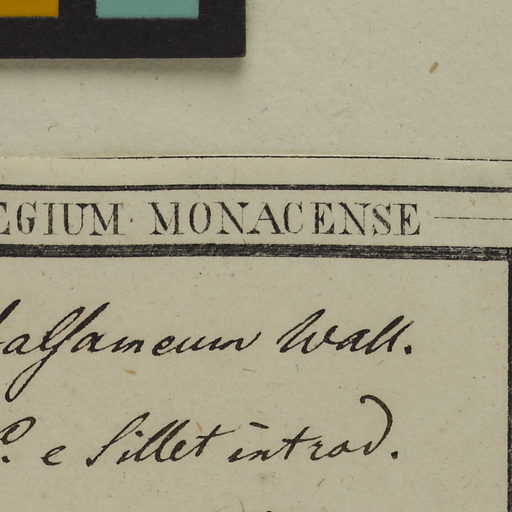 EGIUM MONACENSE
balsameum Wall.
C. e Sillet introd.